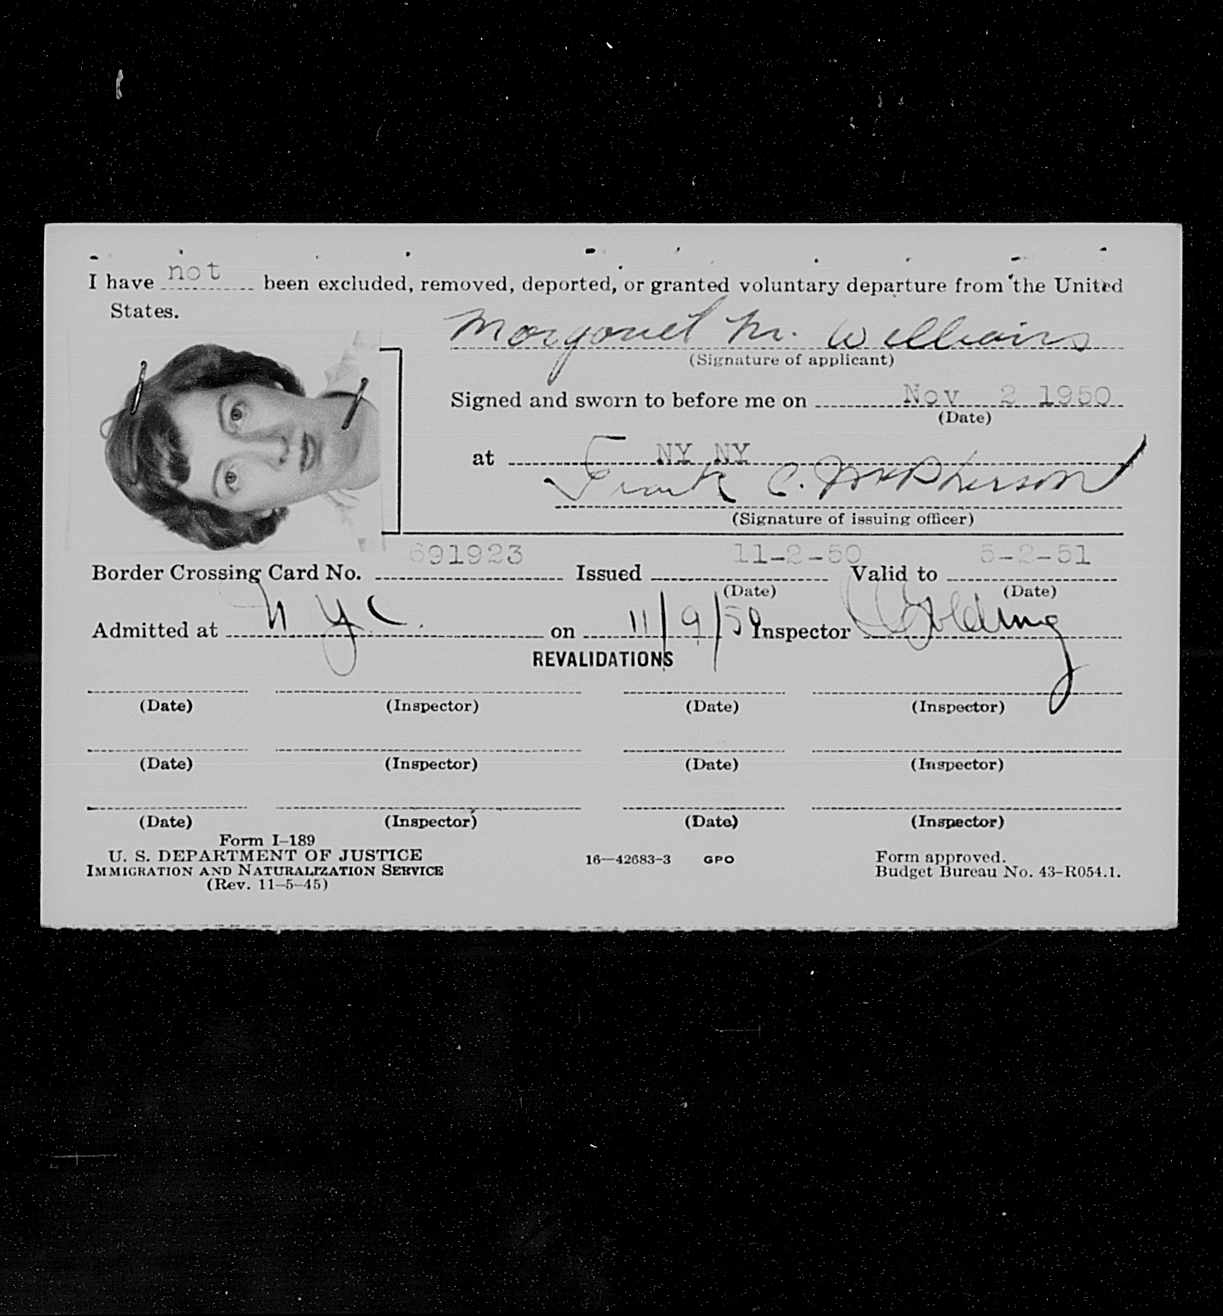 I have not been excluded, removed, deported, or granted voluntary departure from the United
States.
Margaret M. Williams
(Signature of applicant)
Signed and sworn to before me on Nov 2 1950
(Date)
at NY NY
Frank C. McPherson
(Signature of issuing officer)
Border Crossing Card No. 691923 Issued 11-2-50 Valid to 5-2-51
(Date) (Date)
Admitted at NYC. on 11/9/50 Inspector Golding
REVALIDATIONS
(Date) (Inspector) (Date) (Inspector)
(Date) (Inspector) (Date) (Inspector)
(Date) (Inspector) (Date) (Inspector)
Form I-189
U. S. DEPARTMENT OF JUSTICE
IMMIGRATION AND NATURALIZATION SERVICE
(Rev. 11-5-45)
16—42683-3 GPO
Form approved.
Budget Bureau No. 43-R054.1.